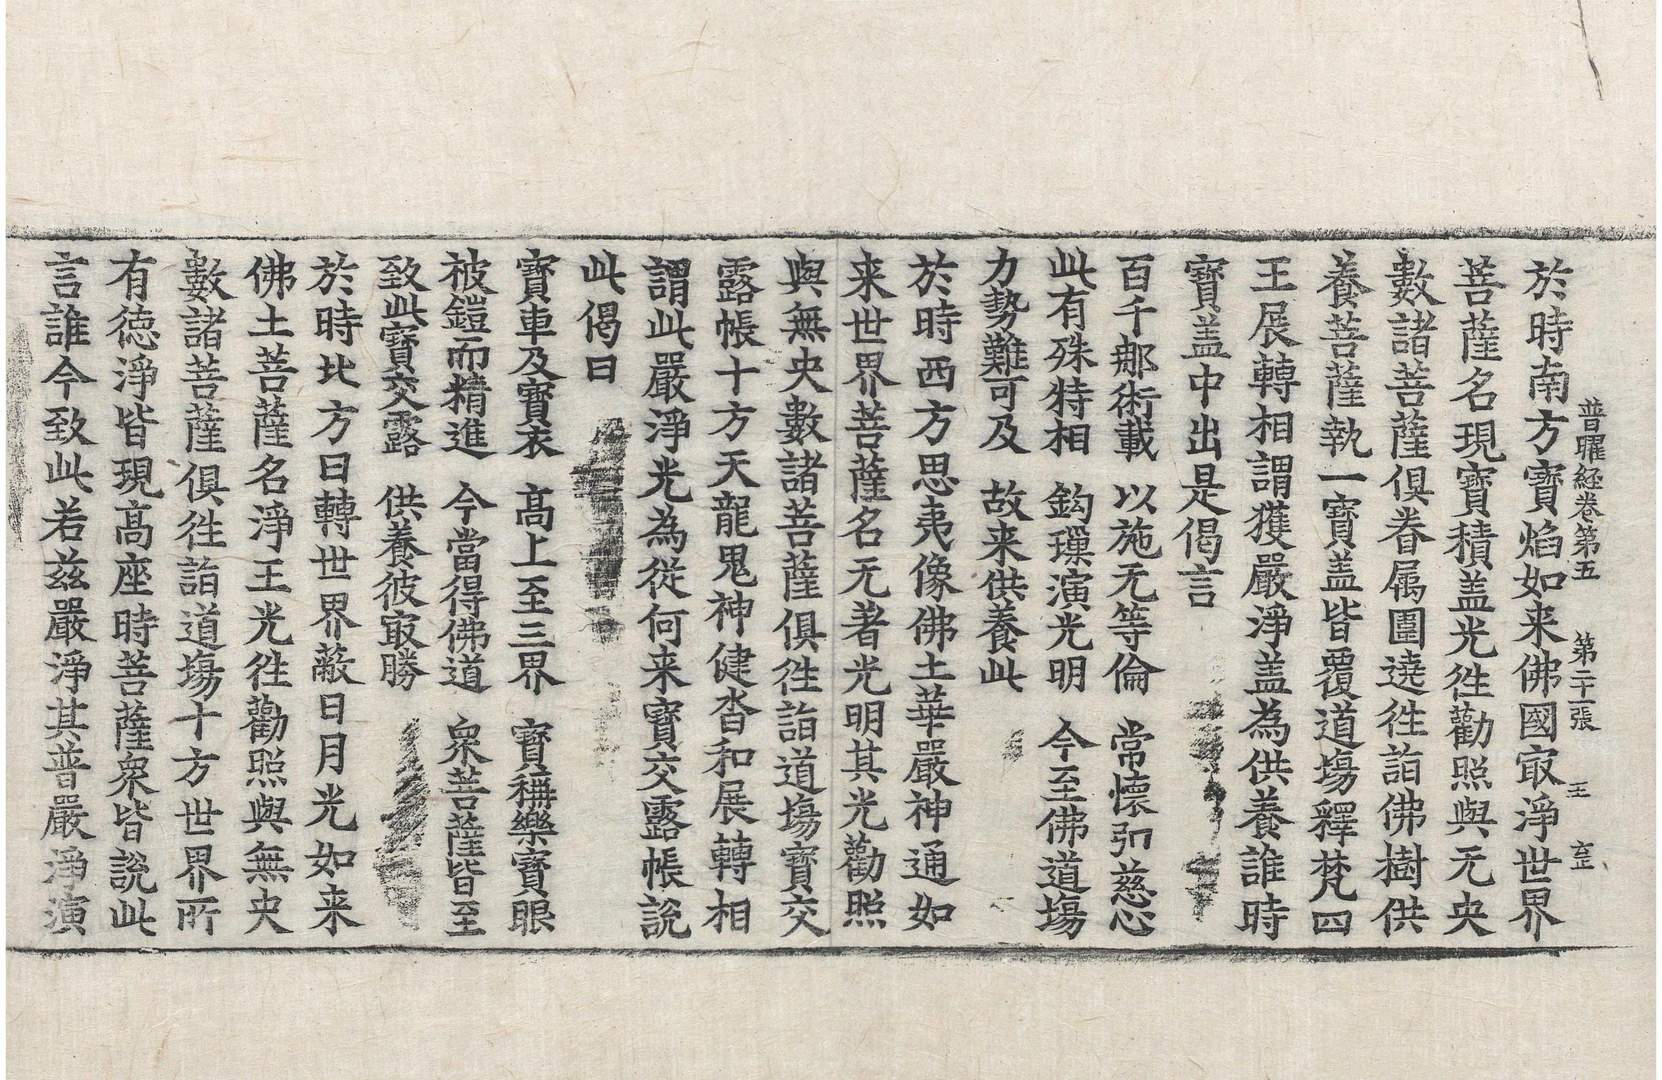 普曜経卷第五 第二十一張 王
於時南方寶焰如来佛國㝡淨世界
菩薩名現寶積盖光徃勸照與无央
數諸菩薩俱眷属圍遶徃詣佛樹供
養菩薩執一寶盖皆覆道塲釋梵四
王展轉相謂獲嚴淨盖為供養誰時
寶盖中出是偈言
百千䣯術載 以施无等倫 常懷弘慈心
此有殊特相 鈎璅演光明 今至佛道塲
力勢難可及 故来供養此
於時西方思夷像佛土華嚴神通如
来世界菩薩名无著光明其光勸照
與無央數諸菩薩俱徃詣道塲寶交
露帳十方天龍鬼神健沓和展轉相
謂此嚴淨光為從何来寶交露帳說
此偈曰
寶車及寶衣 髙上至三界 寶稱樂寶眼
被鎧而精進 今當得佛道 衆菩薩皆至
致此寶交露 供養彼㝡勝
於時北方曰轉世界蔽日月光如来
佛土菩薩名淨王光徃勸照與無央
數諸菩薩俱徃詣道塲十方世界所
有德淨皆現髙座時菩薩衆皆說此
言誰今致此若兹嚴淨其普嚴淨演